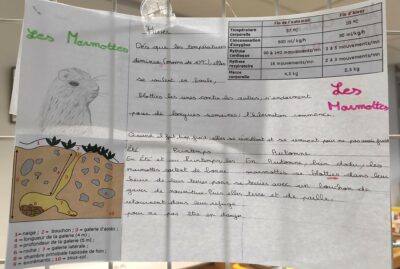 Les Marmottes
Hiver
Dès que les températures
diminuent (moins de 10°C), elles
se roulent en boule,
blotties les unes contre les autres, s'endorment
pour de longues semaines : l'hibernation commence.
Quand il fait trop froid, elles se réveillent et se remuent pour ne pas avoir froid
Fin de l'automne
Fin d'hiver
Température corporelle
37 °C
10 °C
Consommation d'oxygène
500 ml/kg/h
30 ml/kg/h
Rythme cardiaque
mouvements/mn
mouvements/mn
Rythme respiratoire
16 mouvements/mn
2 mouvements/mn
Masse corporelle
Les
Marmottes
Été
Printemps
Automne
En été et au printemps les
marmottes sortent de leurs
pour se
de nourriture puis elles
retournent dans leur refuge
pour ne pas être en danger.
En Automne, bien dodu, les
marmottes se blotties dans leur
terrier avec un bouchon de
terre et de paille.
1 = neige ; 2 = bouchon ; 3 = galerie d'accès ;
4 = longueur de la galerie (4 m) ;
5 = profondeur de la galerie (5 m) ;
6 = roche ; 7 = galerie latérale ;
8 = chambre principale tapissée de foin ;
9 = excréments ; 10 = sous-sol